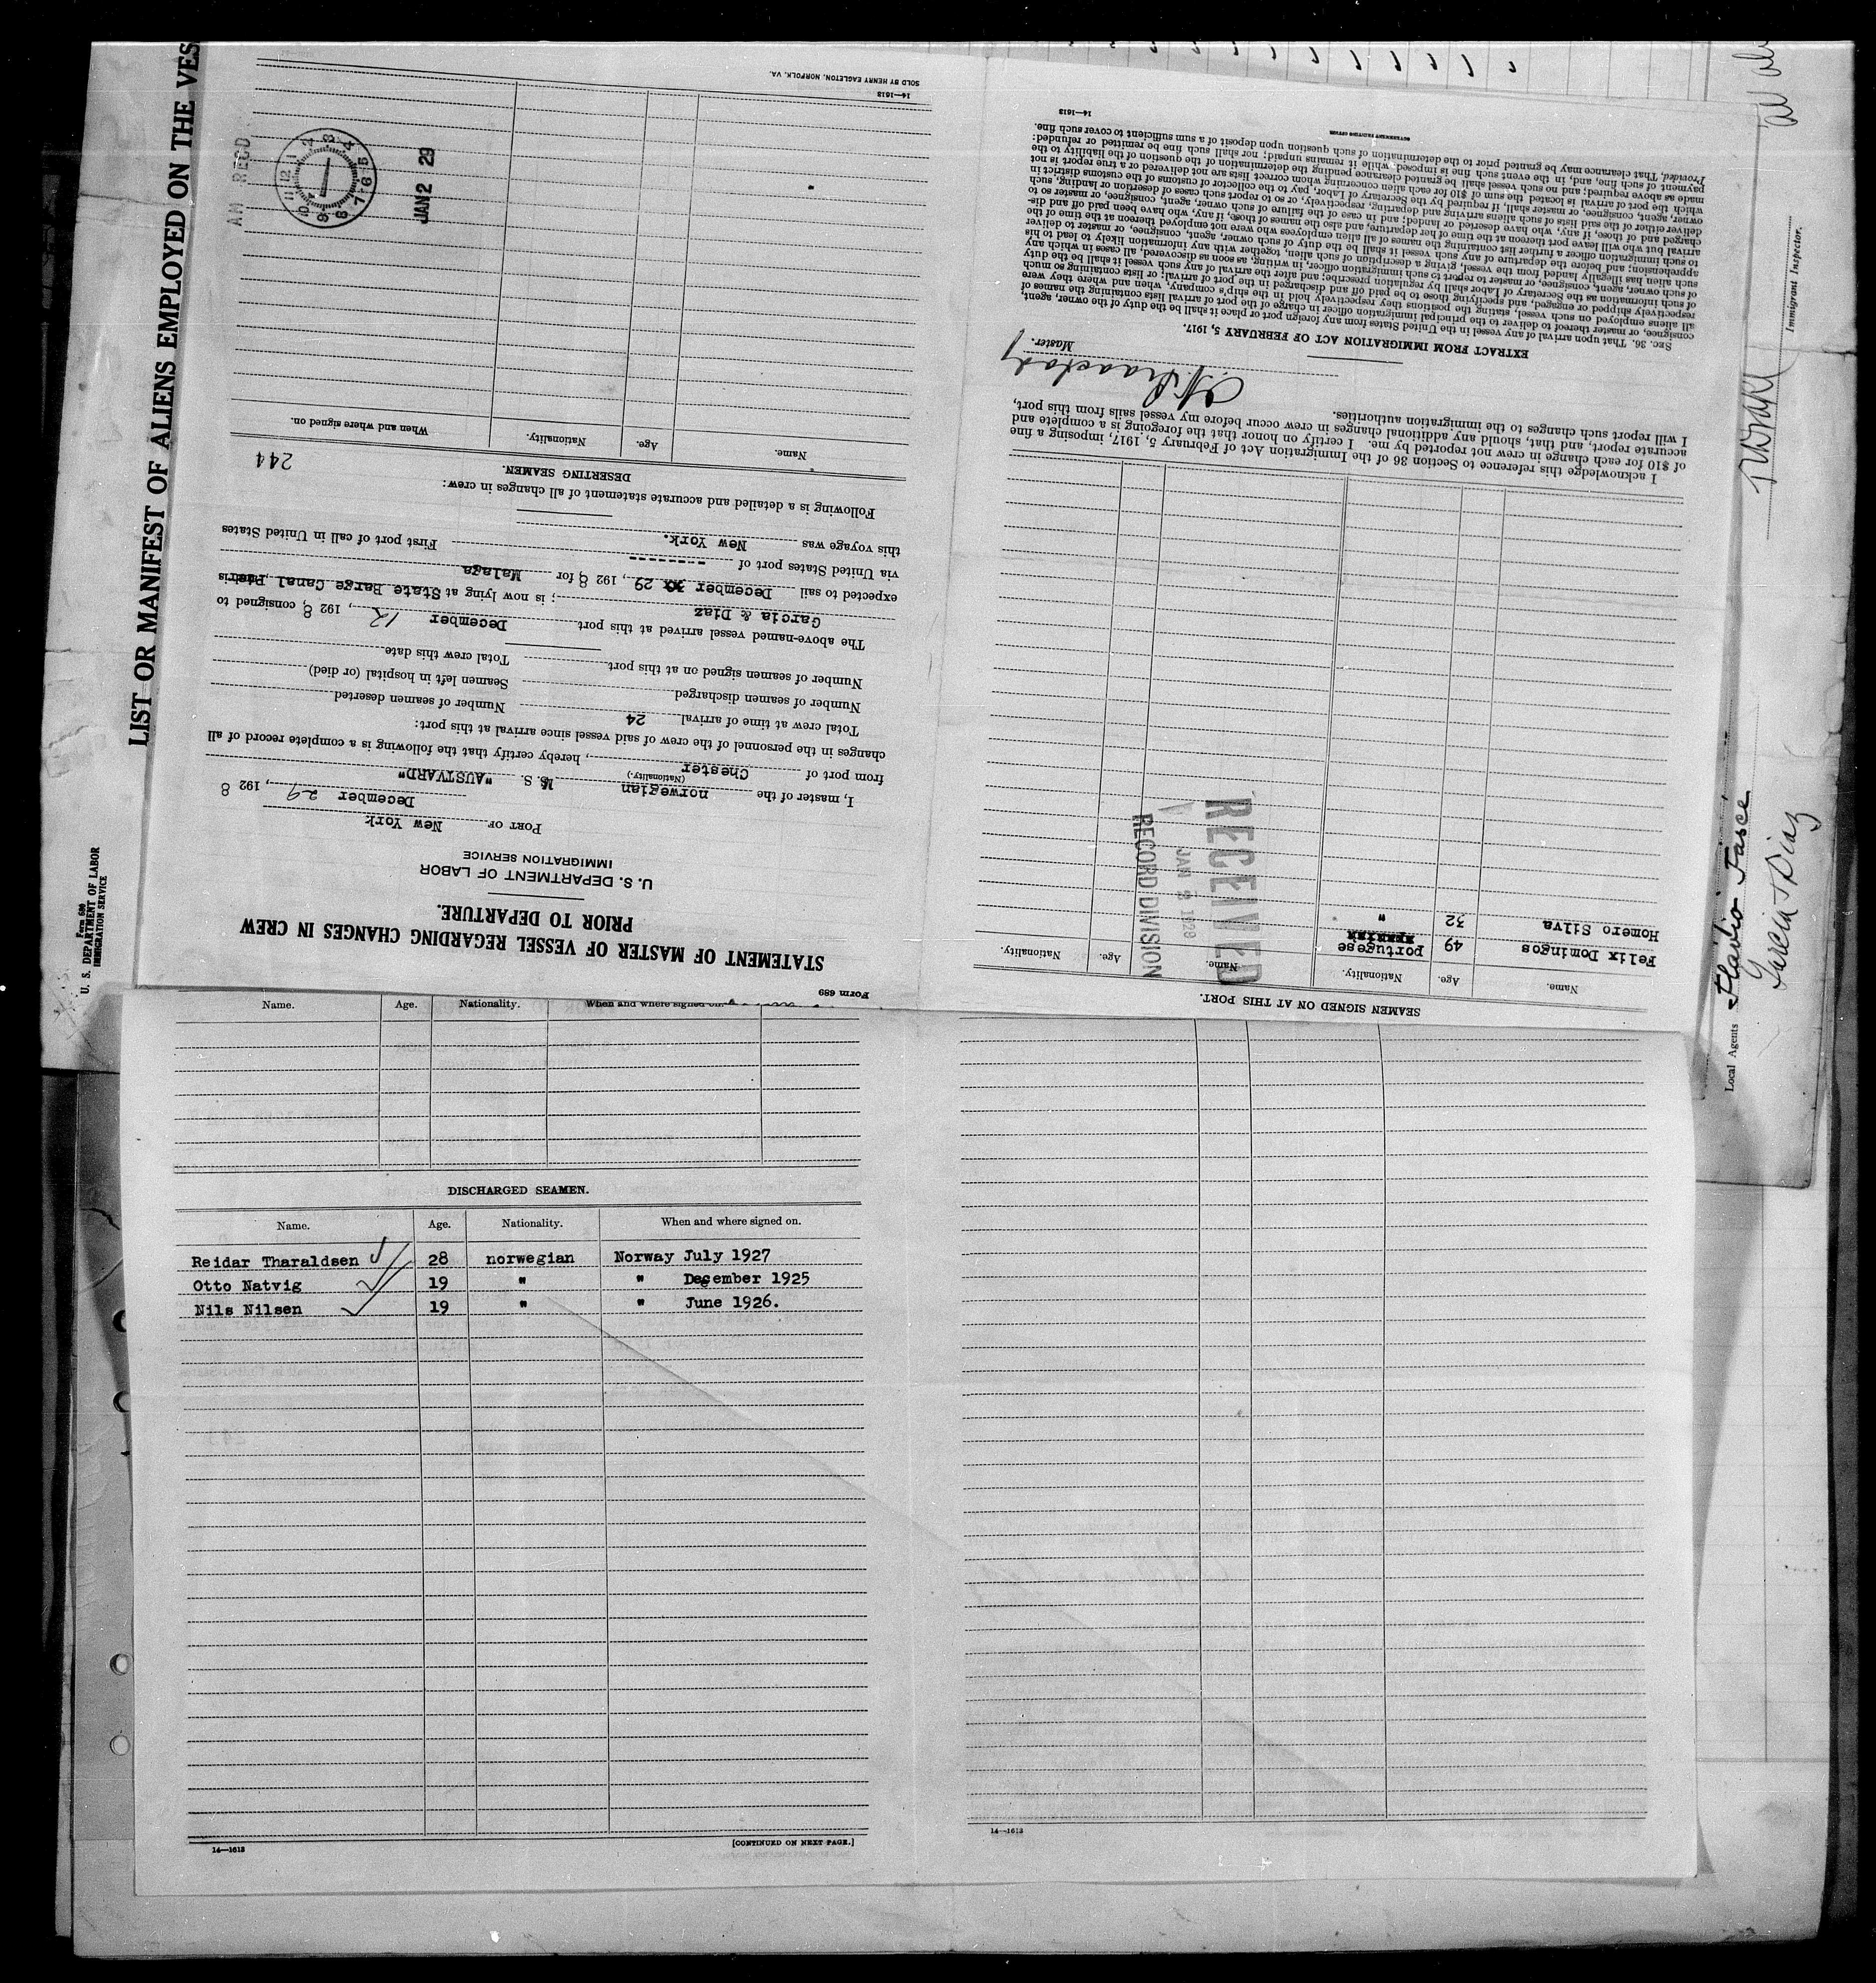 LIST OR MANIFEST OF ALIENS EMPLOYED ON THE VES
Form 680
U. S. DEPARTMENT OF LABOR
IMMIGRATION SERVICE
Form 689
STATEMENT OF MASTER OF VESSEL REGARDING CHANGES IN CREW
PRIOR TO DEPARTURE.
U. S. DEPARTMENT OF LABOR
IMMIGRATION SERVICE
PORT OF New York
December 29, 192 8
I, master of the norwegian M S. "AUSTVARD"
(Nationality.)
from port of Chester, hereby certify that the following is a complete record of all
changes in the personnel of the crew of said vessel since arrival at this port:
Total crew at time of arrival 24 Number of seamen deserted
Number of seamen discharged Seamen left in hospital (or died)
Number of seamen signed on at this port Total crew this date
The above-named vessel arrived at this port December 12, 192 8, consigned to
Garcia & Diaz; is now lying at State Barge Canal
expected to sail December 29, 192 8, for Malaga
via United States port of -------
First port of call in United States
this voyage was New York.
Following is a detailed and accurate statement of all changes in crew:
DESERTING SEAMEN.
244
Name. Age. Nationality. When and where signed on.
AM RECD
JAN 2 29
14—1613
SOLD BY HENRY EAGLETON, NORFOLK, VA.
SEAMEN SIGNED ON AT THIS PORT.
Name. Age. Nationality. Name. Age. Nationality.
Felix Domingos 49 portugese
Homero Silva 32 "
RECEIVED
JAN 2 1929
RECORD DIVISION
I acknowledge this reference to Section 36 of the Immigration Act of February 5, 1917, imposing a fine
of $10 for each change in crew not reported by me. I certify on honor that the foregoing is a complete and
accurate report, and that, should any additional changes in crew occur before my vessel sails from this port,
I will report such changes to the immigration authorities.
Master.
EXTRACT FROM IMMIGRATION ACT OF FEBRUARY 5, 1917.
SEC. 36. That upon arrival of any vessel in the United States from any foreign port or place it shall be the duty of the owner, agent,
consignee, or master thereof to deliver to the principal immigration officer in charge of the port of arrival lists containing the names of
all aliens employed on such vessel, stating the positions they respectively hold in the ship's company, when and where they were
respectively shipped or engaged, and specifying those to be paid off and discharged in the port of arrival; or lists containing so much
of such information as the Secretary of Labor shall by regulation prescribe; and after the arrival of any such vessel it shall be the duty
of such owner, agent, consignee, or master to report to such immigration officer, in writing, as soon as discovered, all cases in which any
such alien has illegally landed from the vessel, giving a description of such alien, together with any information likely to lead to his
apprehension; and before the departure of any such vessel it shall be the duty of such owner, agent, consignee, or master to deliver
to such immigration officer a further list containing the names of all alien employees who were not employed thereon at the time of the
arrival but who will leave port thereon at the time of her departure, and also the names of those, if any, who have been paid off and dis-
charged and of those, if any, who have deserted or landed; and in case of the failure of such owner, agent, consignee, or master so to
deliver either of the said lists of such aliens arriving and departing, respectively, or so to report such cases of desertion or landing, such
owner, agent, consignee, or master shall, if required by the Secretary of Labor, pay to the collector of customs of the customs district in
which the port of arrival is located the sum of $10 for each alien concerning whom correct lists are not delivered or a true report is not
made as above required; and no such vessel shall be granted clearance pending the determination of the question of the liability to the
payment of such fine, and, in the event such fine is imposed, while it remains unpaid; nor shall such fine be remitted or refunded:
Provided, That clearance may be granted prior to the determination of such question upon deposit of a sum sufficient to cover such fine.
14—1613
GOVERNMENT PRINTING OFFICE
Immigrant Inspector.
Local Agents
Garcia & Diaz
Name. Age. Nationality. When and where signed on.
DISCHARGED SEAMEN.
Name. Age. Nationality. When and where signed on.
Reidar Tharaldsen 28 norwegian Norway July 1927
Otto Natvig 19 " " December 1925
Nils Nilsen 19 " " June 1926.
14—1613
[CONTINUED ON NEXT PAGE.]
14—1613